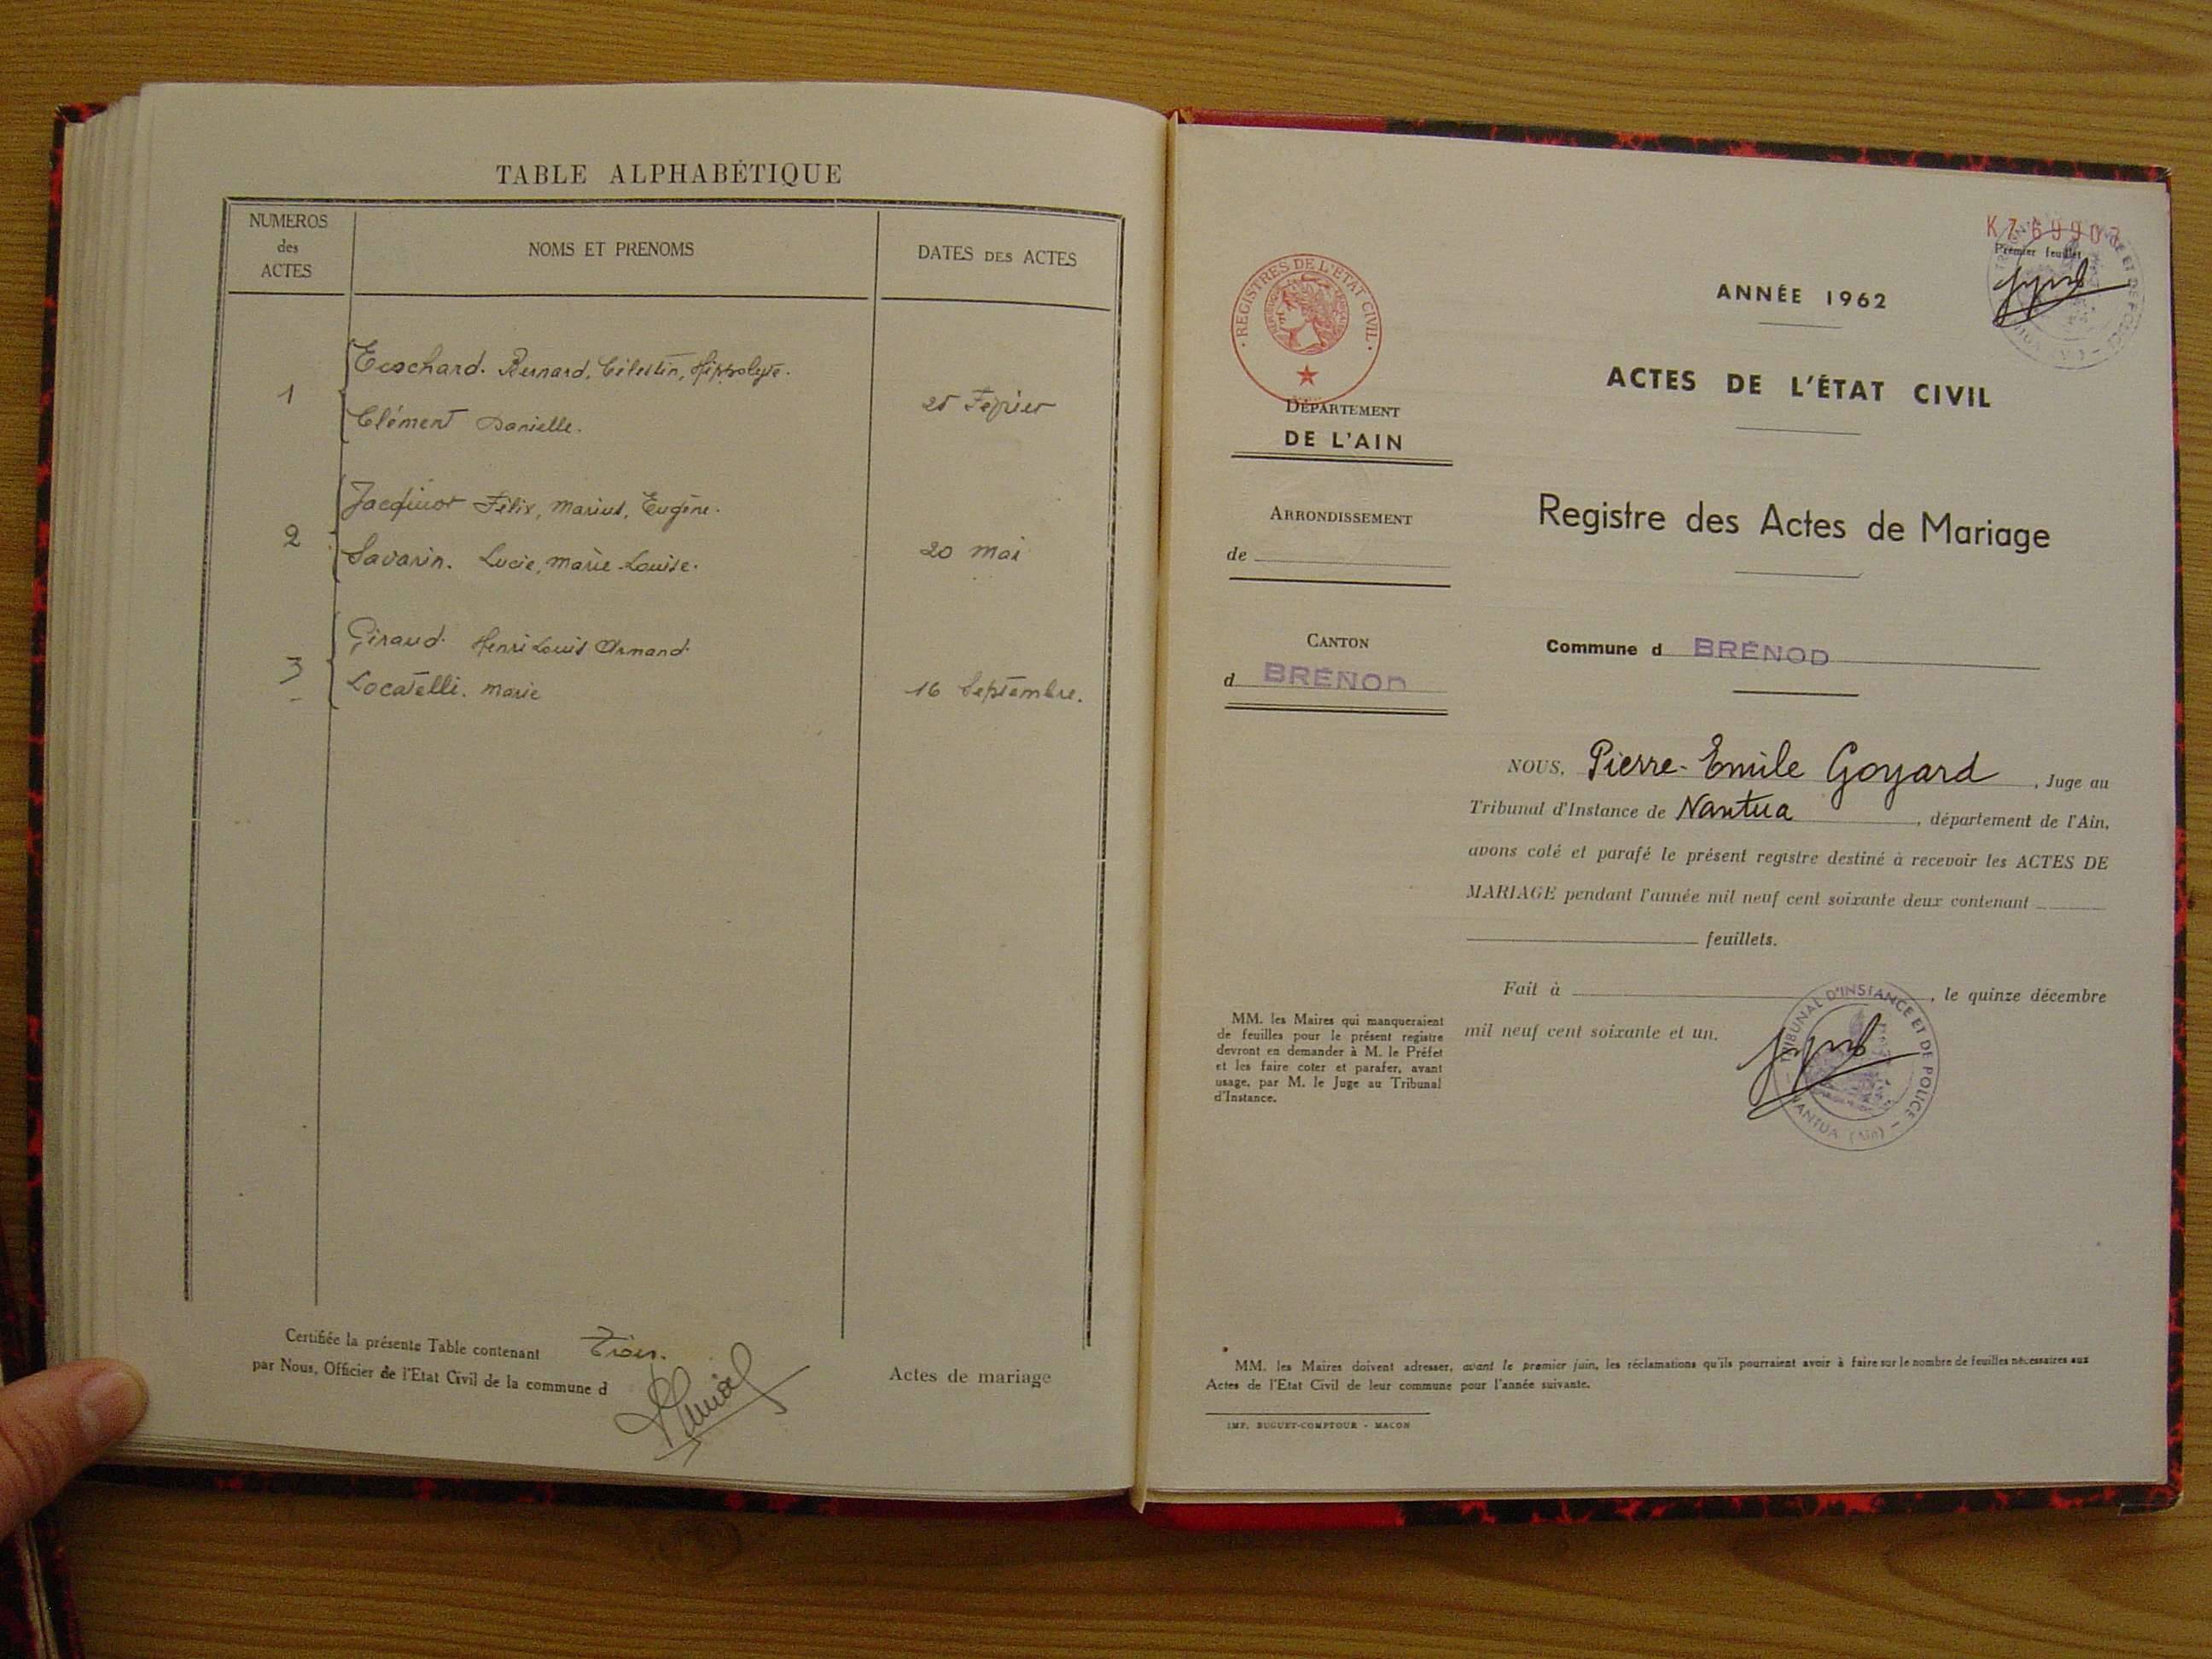 TABLE ALPHABÉTIQUE
NUMEROS
des
ACTES
NOMS ET PRENOMS
DATES DES ACTES
1
Ecochard. Bernard, Célestin, Hippolyte.
Clément Danielle.
25 Février
2
Jacquiot Félix, Marius, Eugène.
Savarin. Lucie, Marie-Louise.
20 mai
3
Giraud. Henri Louis Armand
Locatelli. Marie
16 Septembre.
Certifiée la présente Table contenant trois.
par Nous, Officier de l'Etat Civil de la commune d
Actes de mariage
K 7 6990
Premier feuillet
REGISTRES DE L'ÉTAT CIVIL
ANNÉE 1962
ACTES DE L'ÉTAT CIVIL
DÉPARTEMENT
DE L'AIN
ARRONDISSEMENT
de
Registre des Actes de Mariage
CANTON
d BRÉNOD
Commune d BRÉNOD
NOUS, Pierre-Emile Goyard, Juge au
Tribunal d'Instance de Nantua, département de l'Ain,
avons coté et parafé le présent registre destiné à recevoir les ACTES DE
MARIAGE pendant l'année mil neuf cent soixante deux contenant
feuillets.
Fait à , le quinze décembre
mil neuf cent soixante et un.
TRIBUNAL D'INSTANCE ET DE POLICE
NANTUA (Ain)
MM. les Maires qui manqueraient
de feuilles pour le présent registre
devront en demander à M. le Préfet
et les faire coter et parafer, avant
usage, par M. le Juge au Tribunal
d'Instance.
MM. les Maires doivent adresser, avant le premier juin, les réclamations qu'ils pourraient avoir à faire sur le nombre de feuilles nécessaires aux
Actes de l'Etat Civil de leur commune pour l'année suivante.
IMP. BUGUET-COMPTOUR - MACON